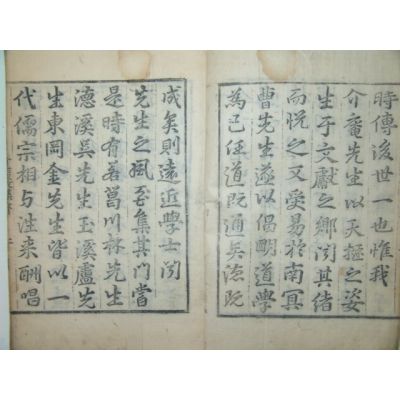 時傳後世一也惟我
介菴先生以天挺之姿
生于文獻之鄉聞其緒
而悅之又受易於南冥
曹先生遂以倡明道學
為己任道既通矣德既
成矣則遠近學士聞
先生之風至集其門當
是時有若葛川林先生
德溪吳先生玉溪盧先
生東岡金先生皆以一
代儒宗相与往来酬唱